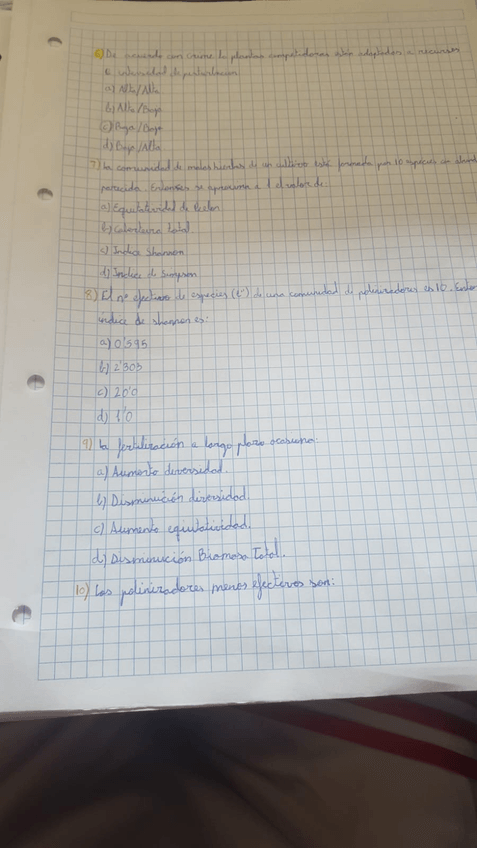 6) De acuerdo con Grime las plantas competidoras están adaptadas a recursos
e intensidad de perturbación
a) Alta/Alta
b) Alta/Baja
c) Baja/Baja
d) Baja/Alta
7) La comunidad de malas hierbas de un cultivo está formada por 10 especies con
parecida. Entonces se aproxima a 1 el valor de:
a) Equitatividad de Pielou
b) Cobertura total.
c) Indice Shannon
d) Indice de Simpson
8) El nº efectivo de especies (e^) de una comunidad de polinizadores es 10.
indice de shannon es:
a) 0'595
b) 2'303
c) 20'0
d) 1'0
9) La fertilización a largo plazo ocasiona:
a) Aumento diversidad.
b) Disminución diversidad.
c) Aumento equitatividad.
d) Disminución Biomasa Total.
10) Los polinizadores menos efectivos son: